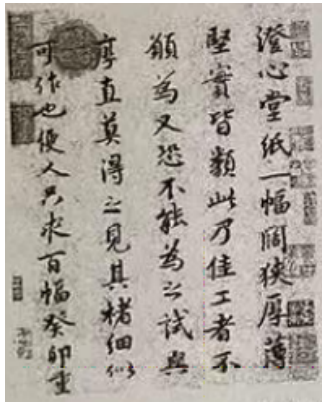 澄心堂纸一幅闊狹厚薄
堅實皆類此乃佳工者不
願為又恐不能為之試與
厚直莫得之見其楮細似
可作也便人只求百幅癸卯重